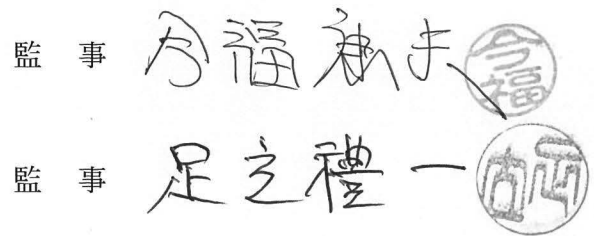 監 事 今福 夫 今福
監 事 足立禮一